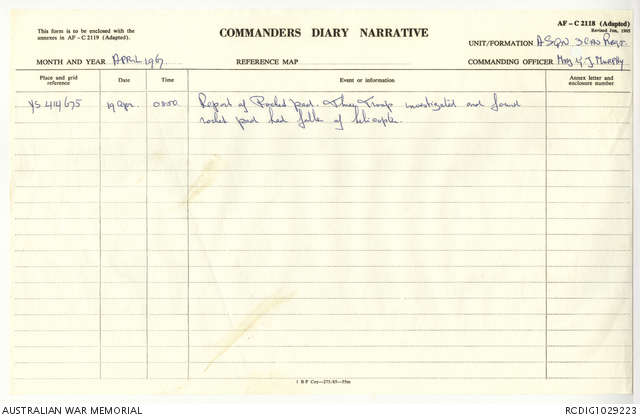 This form is to be enclosed with the
annexes in AF – C 2119 (Adapted).
COMMANDERS DIARY NARRATIVE
AF – C 2118 (Adapted)
Revised Jun, 1965
UNIT/FORMATION A SQN 3 CAV Regt.
MONTH AND YEAR APRIL 1967
REFERENCE MAP
COMMANDING OFFICER Maj J Murphy
Place and grid
reference
Date
Time
Event or information
Annex letter and
enclosure number
YS 414675 19 Apr. 0800 Report of Rocket pod. Troop investigated and found
rocket pod had fallen of helicopter.
1 B P Coy—275/65—55m
AUSTRALIAN WAR MEMORIAL
RCDIG1029223